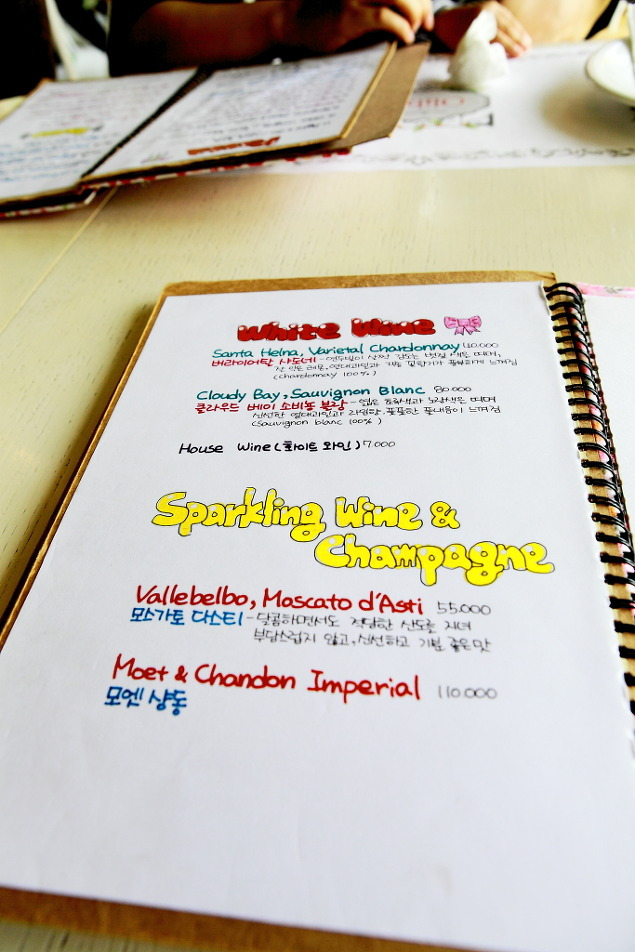 White Wine
Santa Helna, Varietal Chardonnay
버라이어탈 샤도네 -
(chardonnay 100%)
Cloudy Bay, Sauvignon Blanc 80.000
클라우드 베이 소비뇽 블랑 - 엷은 초록색과 노랑색을 띠며
신선한 열대과일과 라임향, 풋풋한 풀내음이 느껴짐
(Sauvignon blanc 100%)
House Wine (화이트 와인) 7.000
Sparkling Wine &
Champagne
Vallebelbo, Moscato d'Asti 55.000
모스가토 다스티 - 달콤하면서도 적당한 산도를 지녀
부담스럽지 않고, 신선하고 기분 좋은 맛
Moet & Chandon Imperial 110.000
모엔 샹동